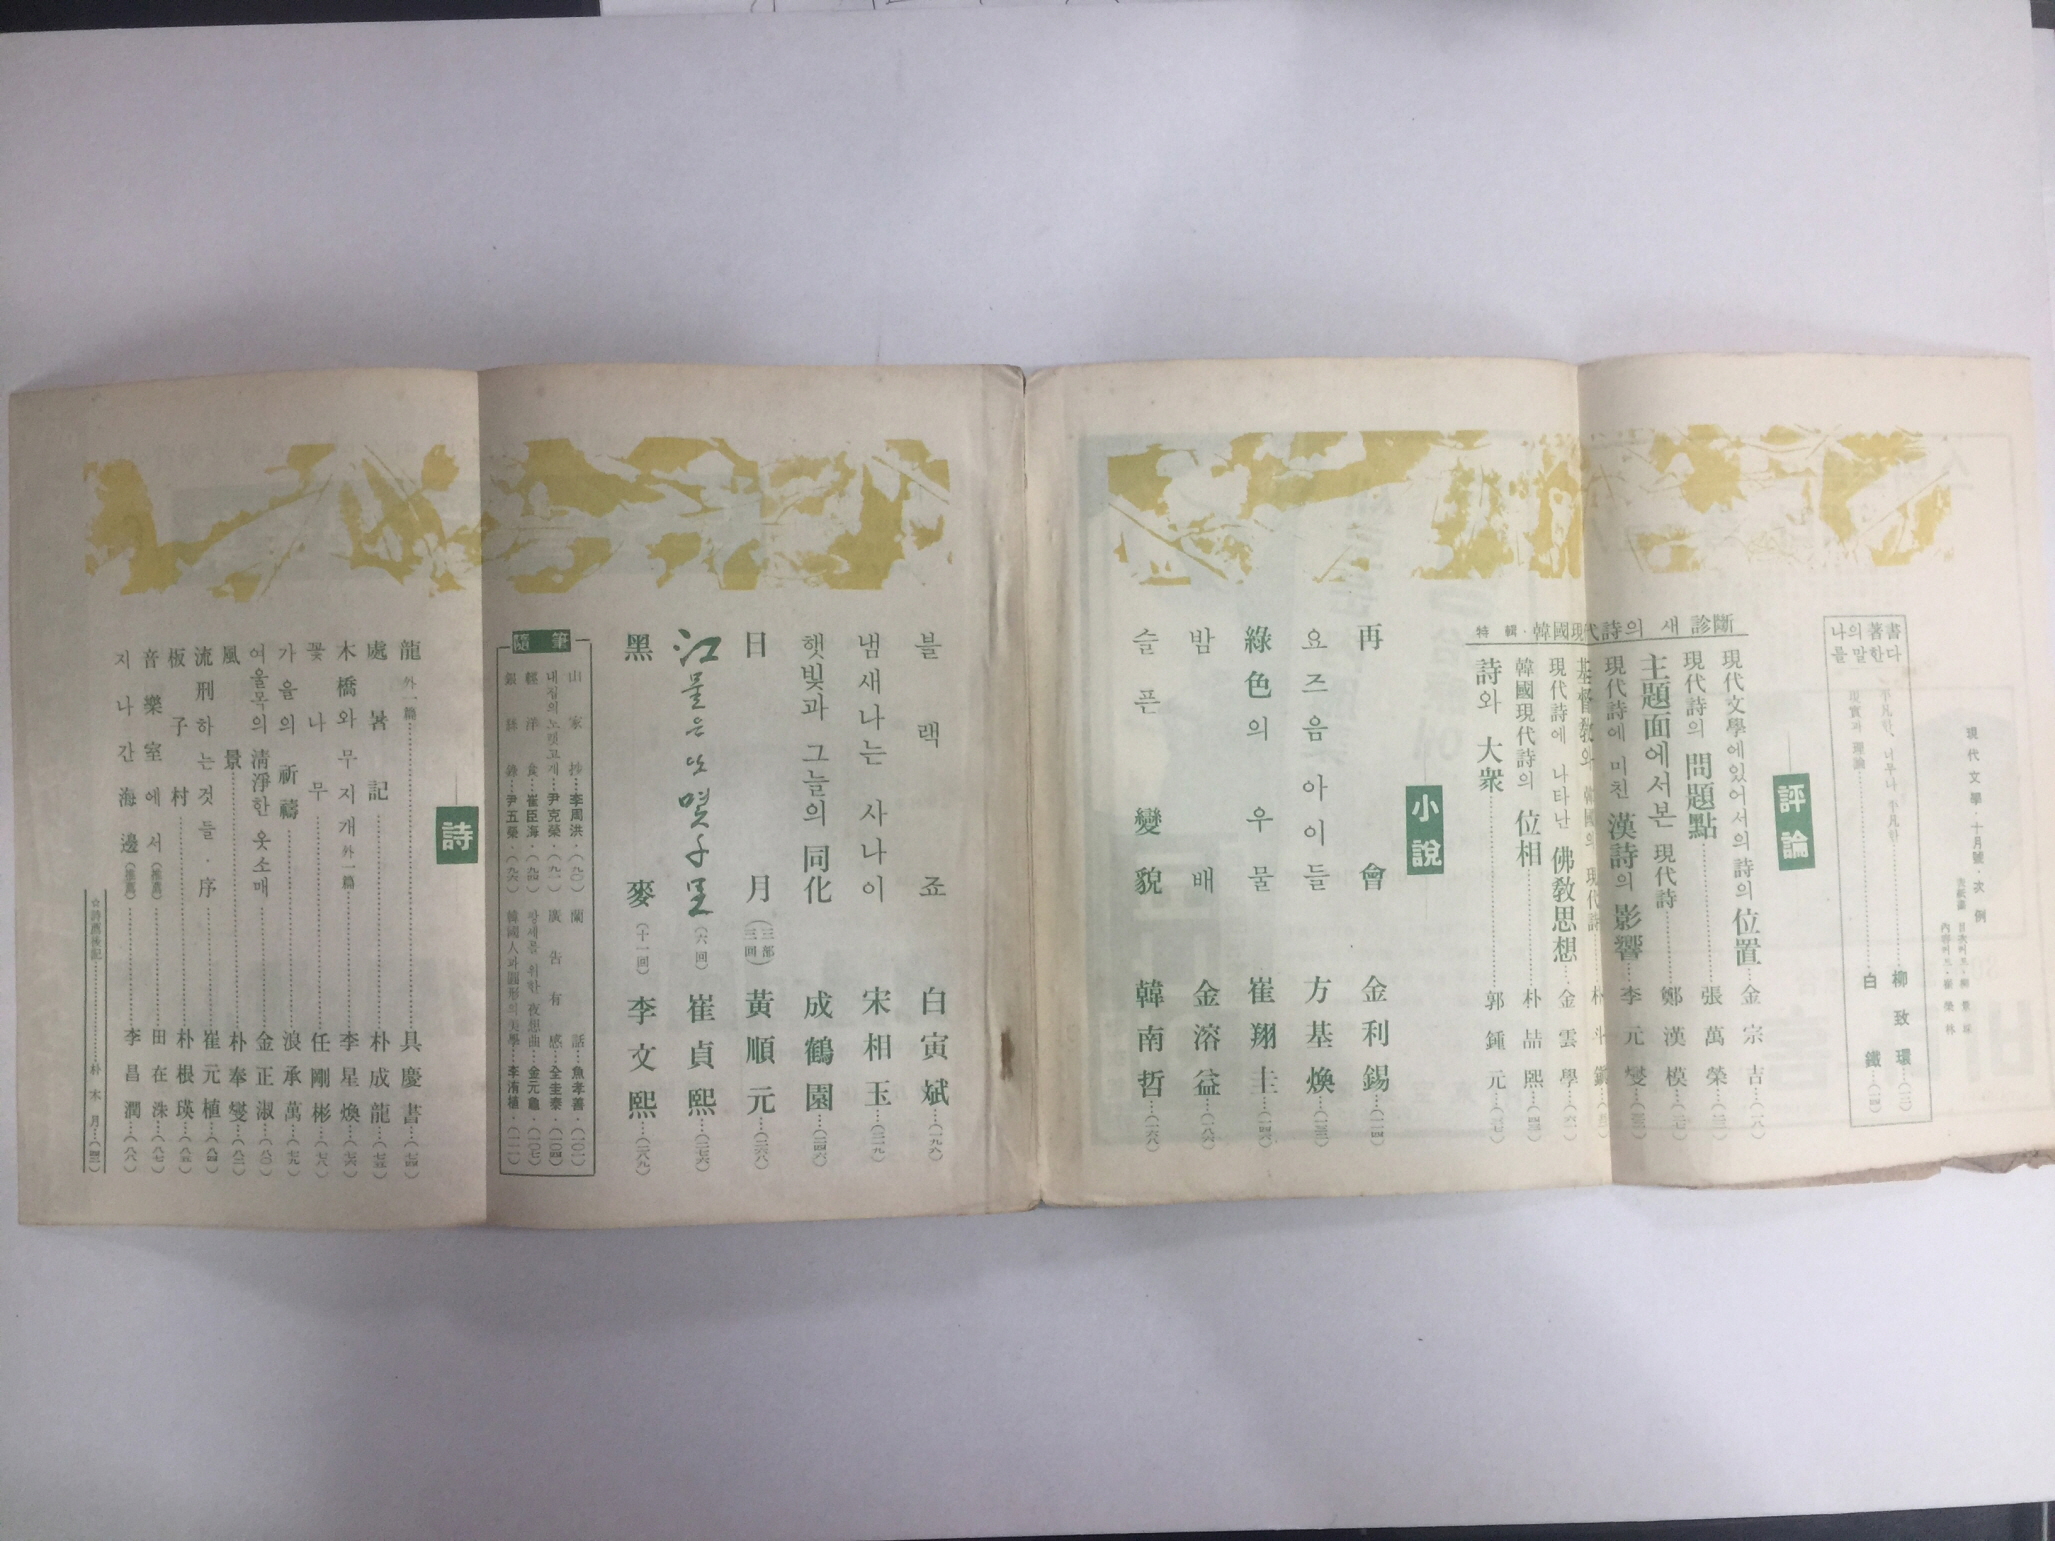 現代文學·十月號·次例
나의 著書
를 말한다
柳致環
現實과 理論 白鐵
評論
特輯·韓國現代詩의 새 診斷
現代文學에있어서의 詩의 位置 金宗吉
現代詩의 問題點 張萬榮
主題面에서본 現代詩 鄭漢模
現代詩에 미친 漢詩의 影響 李元燮
基督敎와 韓國의 現代詩 朴斗鎭
現代詩에 나타난 佛敎思想 金雲學
韓國現代詩의 位相 朴喆熙
詩와 大衆 郭鍾元
小說
再會 金利錫
요즈음 아이들 方基煥
綠色의 우물 崔翔圭
밤배 金溶益
슬픈 變貌 韓南哲
블랙죠 白寅斌
냄새나는 사나이 宋相玉
햇빛과 그늘의 同化 成鶴園
日月(三部 三回) 黃順元
江물은 또 몇 千里(六回) 崔貞熙
黑麥(十一回) 李文熙
隨筆
山家抄 李周洪·(九〇)
내집의 노랫고개 尹克榮·(九一)
輕洋食 崔臣海·(九四)
尹五榮·(九六)
蘭話 魚孝善·(一〇一)
廣告有感 全圭泰·(一〇四)
왕세를 위한 夜想曲 金元龜·(一〇七)
韓國人과 圓形의 美學 李淯植·(一一一)
詩
龍 外一篇 具慶書
處暑記 朴成龍
木橋와 무지개 外一篇 李星煥
꽃나무 任剛彬
가을의 祈禱 浪承萬
여울목의 淸淨한 옷소매 金正淑
風景 朴奉燮
流刑하는것들·序 崔元植
板子村 朴根瑛
音樂室에서(推薦) 田在洙
지나간 海邊(推薦) 李昌潤
☆詩薦後記 朴木月